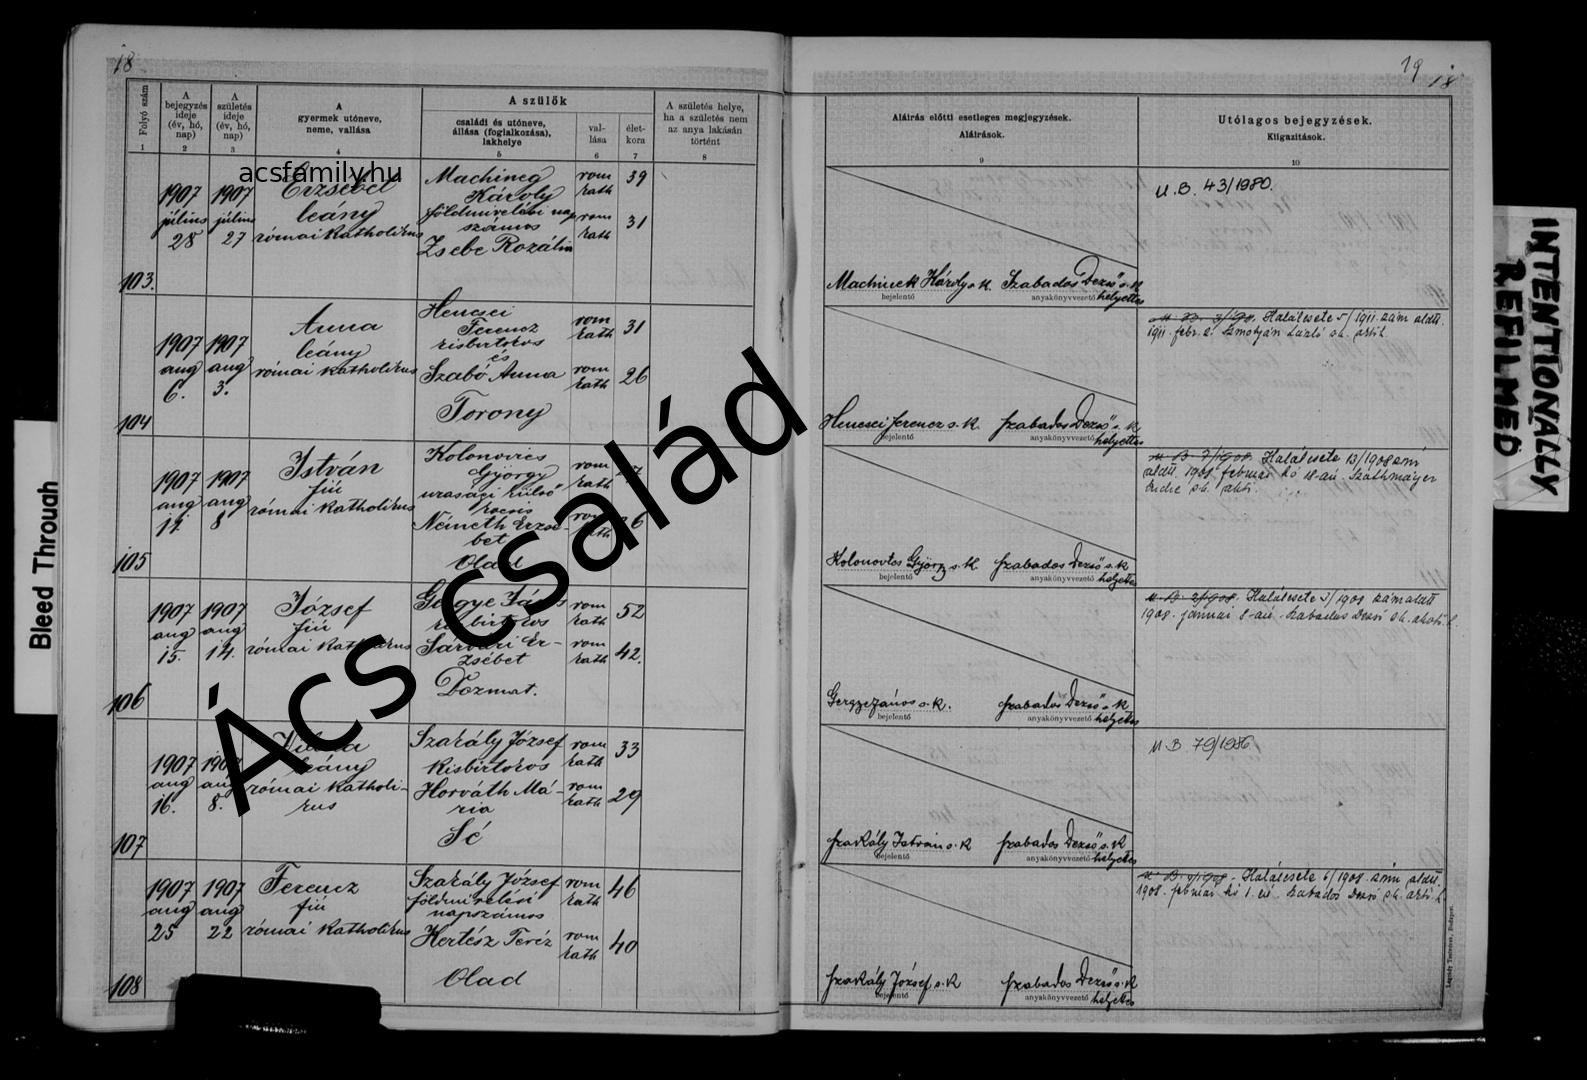 18
Folyó szám
A bejegyzés ideje (év, hó, nap)
A születés ideje (év, hó, nap)
A gyermek utóneve, neme, vallása
A szülők
családi és utóneve, állása (foglalkozása), lakhelye
val-lása
élet-kora
A születés helye, ha a születés nem az anya lakásán történt
1 2 3 4 5 6 7 8
acsfamily.hu
103.
1907 július 28
1907 július 27
Erzsébet
leány
római katholikus
Machineg
Károly
földmivelési nap
számos
Zsebe Rozália
rom kath 39
rom kath 31
104
1907 aug 6.
1907 aug 3.
Anna
leány
római katholikus
Hencsei
Ferencz
kisbirtokos
és
Szabó Anna
Torony
rom kath 31
rom kath 26
105
1907 aug
1907 aug 8
István
fiú
római katholikus
Kolonovics
György
urasági külső
kocsis
Németh Erzsé-
bet
Olad
rom kath
rom kath
106
1907 aug 15.
1907 aug 14.
József
fiú
római katholikus
kisbirtokos
Sárvári Er-
zsébet
Dozmat.
rom kath 52
rom kath 42.
107
1907 aug 16.
1907 aug 8.
leány
római katholi-
kus
Szakály József
kisbirtokos
Horváth Má-
ria
Sé
rom kath 33
rom kath 29
108
1907 aug 25
1907 aug 22
Ferencz
fiú
római katholikus
Szakály József
földmivelési
napszámos
Kertész Teréz
Olad
rom kath 46
rom kath 40
Ács család
19
18
Aláírás előtti esetleges megjegyzések.
Aláírások.
9
Utólagos bejegyzések.
Kiigazitások.
10
U.B. 43/1980.
Machinek Károly s.k. Szabados Dezső s.k.
bejelentő anyakönyvvezető helyettes
Halálesete 5/1911. szám alatt.
1911. febr. 2.
Hencsei Ferencz s.k. Szabados Dezső s.k.
bejelentő anyakönyvvezető helyettes
Halálesete 13/1908 szám
alatt 1908 február hó 18-án. Száthmáryer
Endre s.k. akv.
György s.k. Szabados Dezső s.k.
bejelentő anyakönyvvezető helyettes
Halálesete 3/1908 szám alatt
1908. január 8-án. Szabados Dezső s.k.
s.k. Szabados Dezső s.k.
bejelentő anyakönyvvezető helyettes
U.B. 79/1986.
Szakály István s.k. Szabados Dezső s.k.
bejelentő anyakönyvvezető helyettes
Halálesete 6/1908. szám alatt
1908. február hó 1-én. Szabados Dezső s.k.
Szakály József s.k. Szabados Dezső s.k.
bejelentő anyakönyvvezető helyettes
Bleed Through
INTENTIONALLY
REFILMED